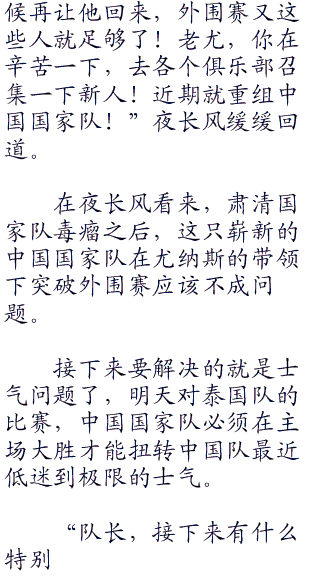 候再让他回来，外围赛又这
些人就足够了！老尤，你在
辛苦一下，去各个俱乐部召
集一下新人！近期就重组中
国国家队！”夜长风缓缓回
道。
在夜长风看来，肃清国
家队毒瘤之后，这只崭新的
中国国家队在尤纳斯的带领
下突破外围赛应该不成问
题。
接下来要解决的就是士
气问题了，明天对泰国队的
比赛，中国国家队必须在主
场大胜才能扭转中国队最近
低迷到极限的士气。
“队长，接下来有什么
特别